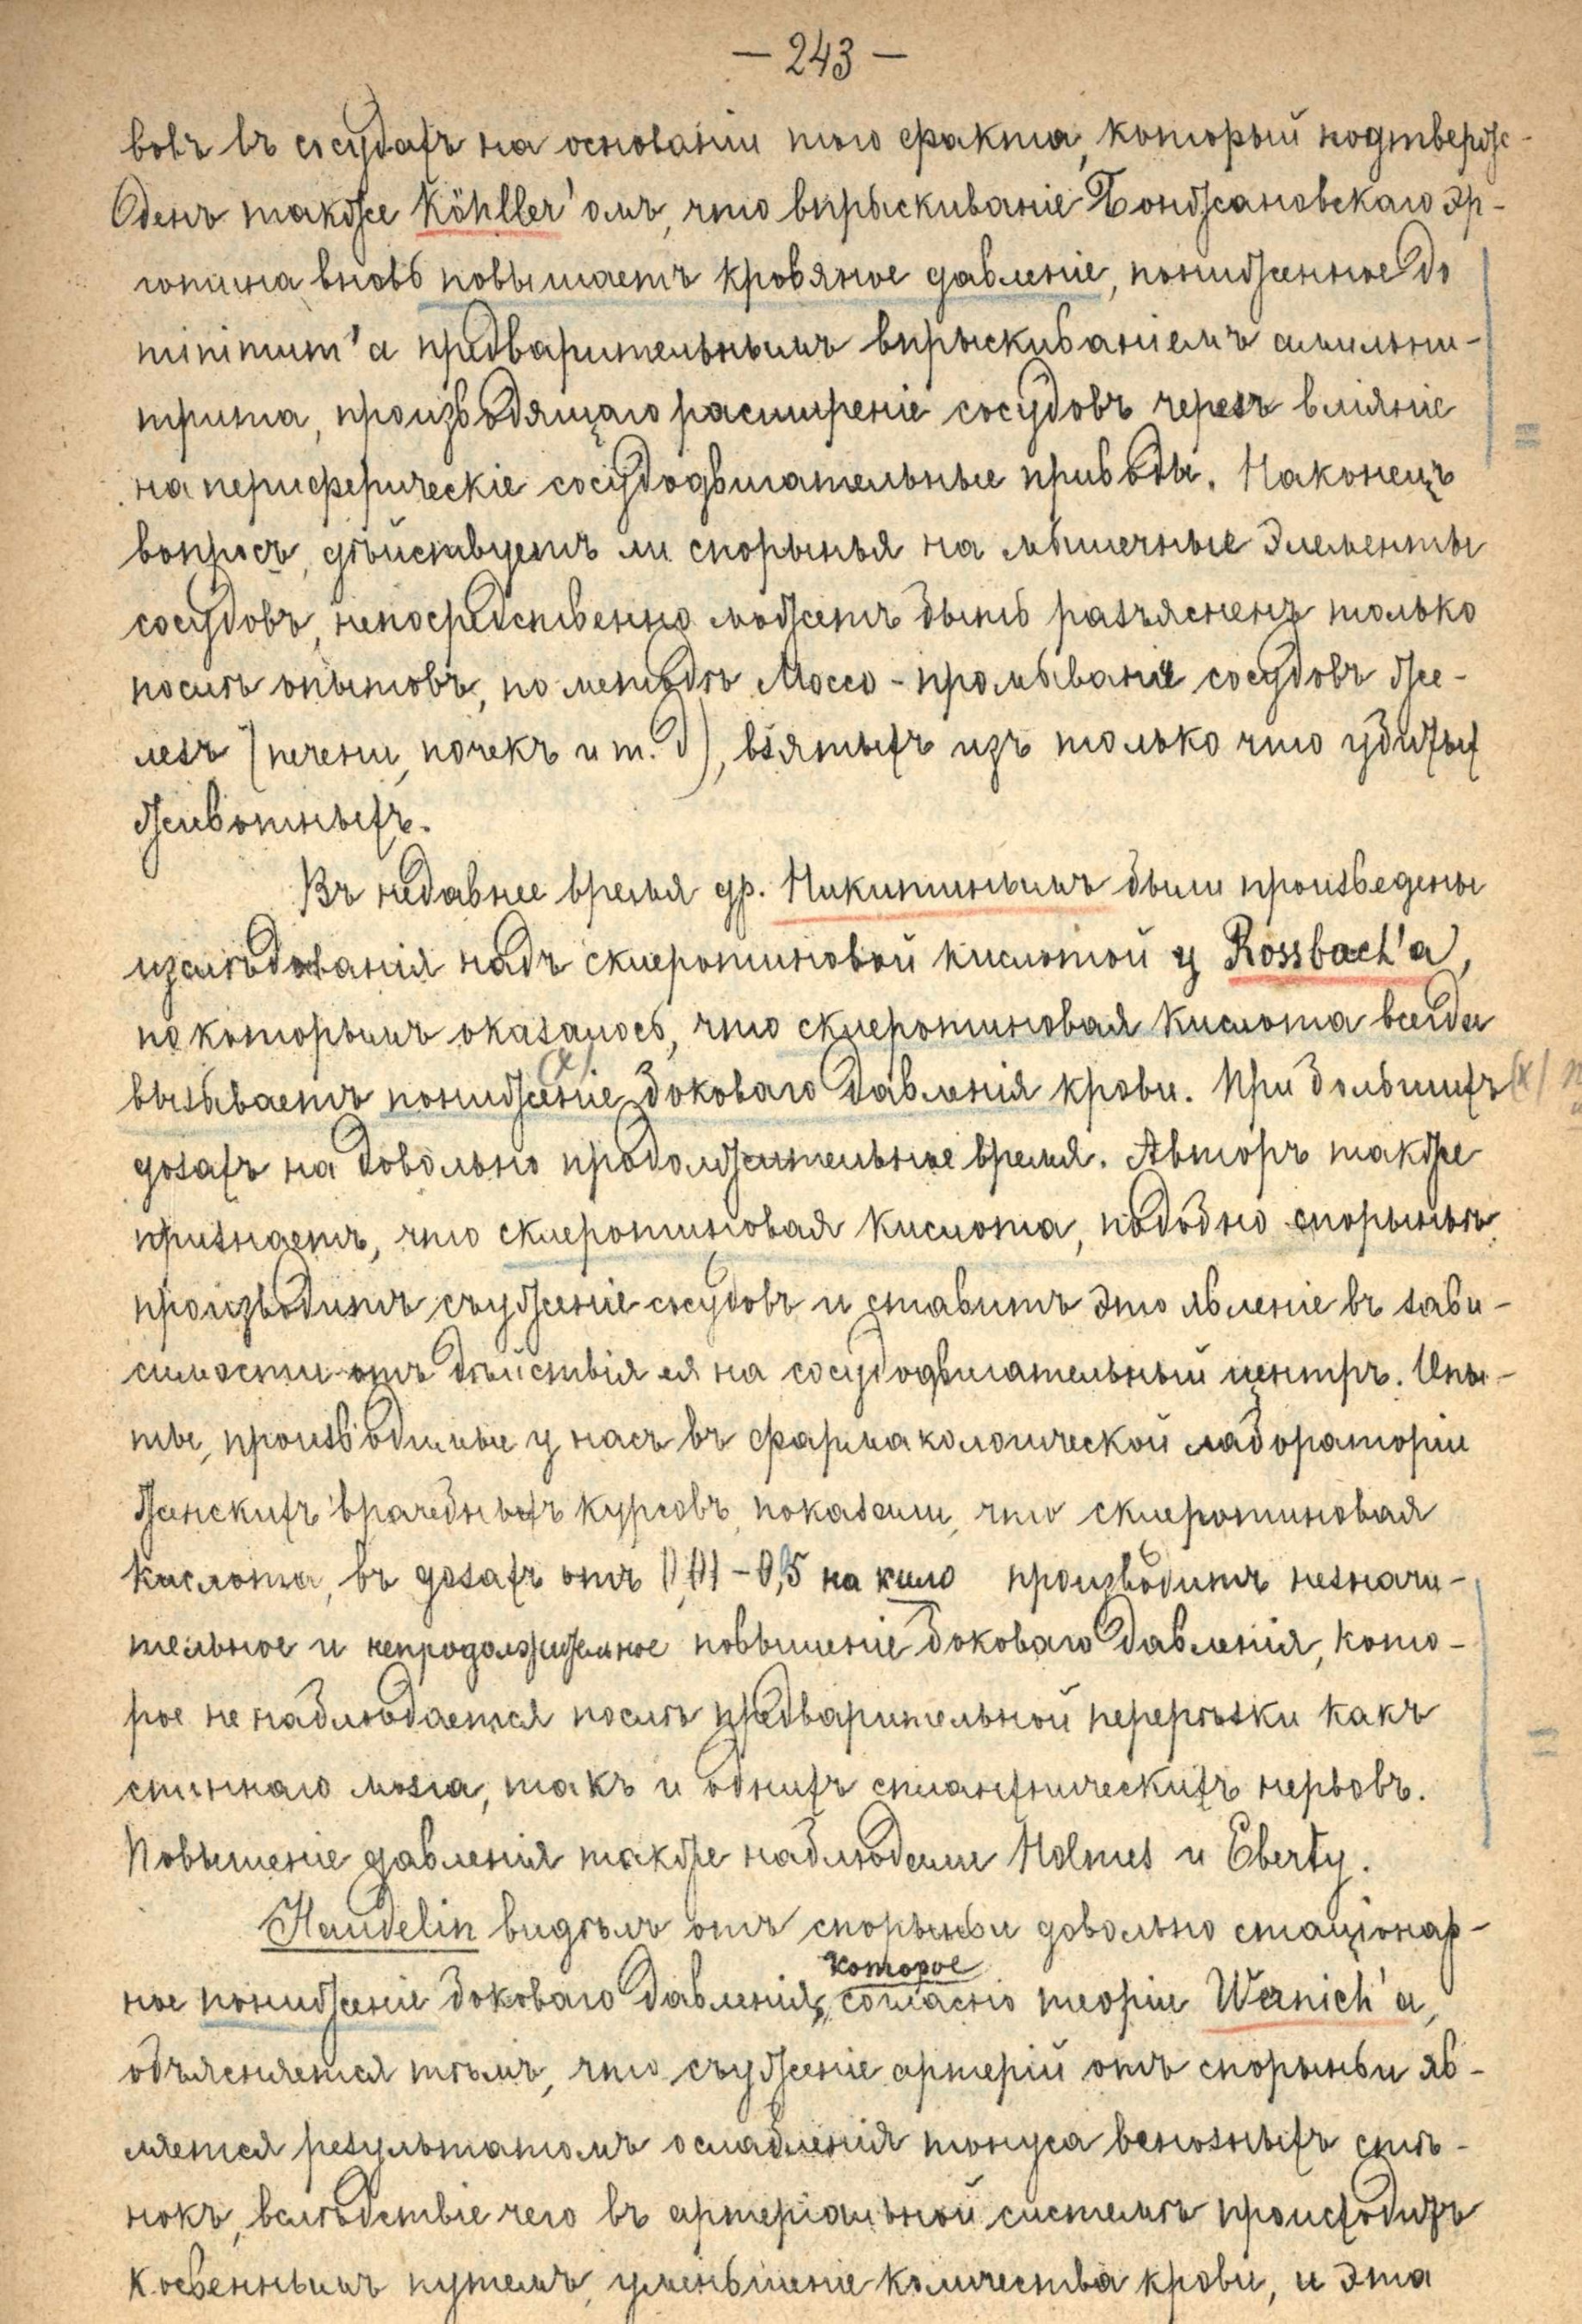 — 243 —
вовъ въ сосудахъ на основаніи того факта, который подтверж-
денъ также Köhller'омъ, что впрыскиваніе Бонжановскаго эр-
готина вновь повышаетъ кровяное давленіе, пониженное до
minimum'a предварительнымъ впрыскиваніемъ амильни-
трита, производящаго расширеніе сосудовъ черезъ вліяніе
на периферическіе сосудодвигательные приводы. Наконецъ
вопросъ, дѣйствуетъ ли спорынья на мышечные элементы
сосудовъ, непосредственно можетъ быть разъясненъ только
послѣ опытовъ, по методѣ Моссо - промыванiе сосудовъ же-
лезъ (печени, почекъ и т. д), взятыхъ изъ только что убитых
животныхъ.
Въ недавнее время др. Никитинымъ были произведены
изслѣдованія надъ склеротиновой кислотой у Rossbach'a,
по которымъ оказалось, что склеротиновая кислота всегда
вызываетъ пониженіе боковаго давленія крови. При большихъ (x)
дозахъ на довольно продолжительное время. Авторъ также
признаетъ, что склеротиновая кислота, подобно спорыньѣ,
производитъ съуженіе сосудовъ и ставитъ это явленіе въ зави-
симости отъ дѣйствія ея на сосудодвигательный центръ. Опы-
ты, производимые у насъ въ фармакологической лабораторіи
женскихъ врачебныхъ курсовъ, показали, что склеротиновая
кислота, въ дозахъ отъ 0,01 - 0,5 на кило производитъ незначи-
тельное и непродолжительное повышеніе боковаго давленія, кото-
рое не наблюдается послѣ предварительной перерѣзки какъ
спиннаго мозга, такъ и однихъ спланхническихъ нервовъ.
Повышеніе давленія также наблюдали Holmes и Eberty.
Haudelin видѣлъ отъ спорыньи довольно стаціонар-
ное пониженіе боковаго давленія, которое согласно теоріи Wernich'a,
объясняется тѣмъ, что съуженіе артерій отъ спорыньи яв-
ляется результатомъ ослабленія тонуса венозныхъ стѣ-
нокъ, вслѣдствіе чего въ артеріальной системѣ происходитъ
косвеннымъ путемъ, уменьшеніе количества крови, и эта